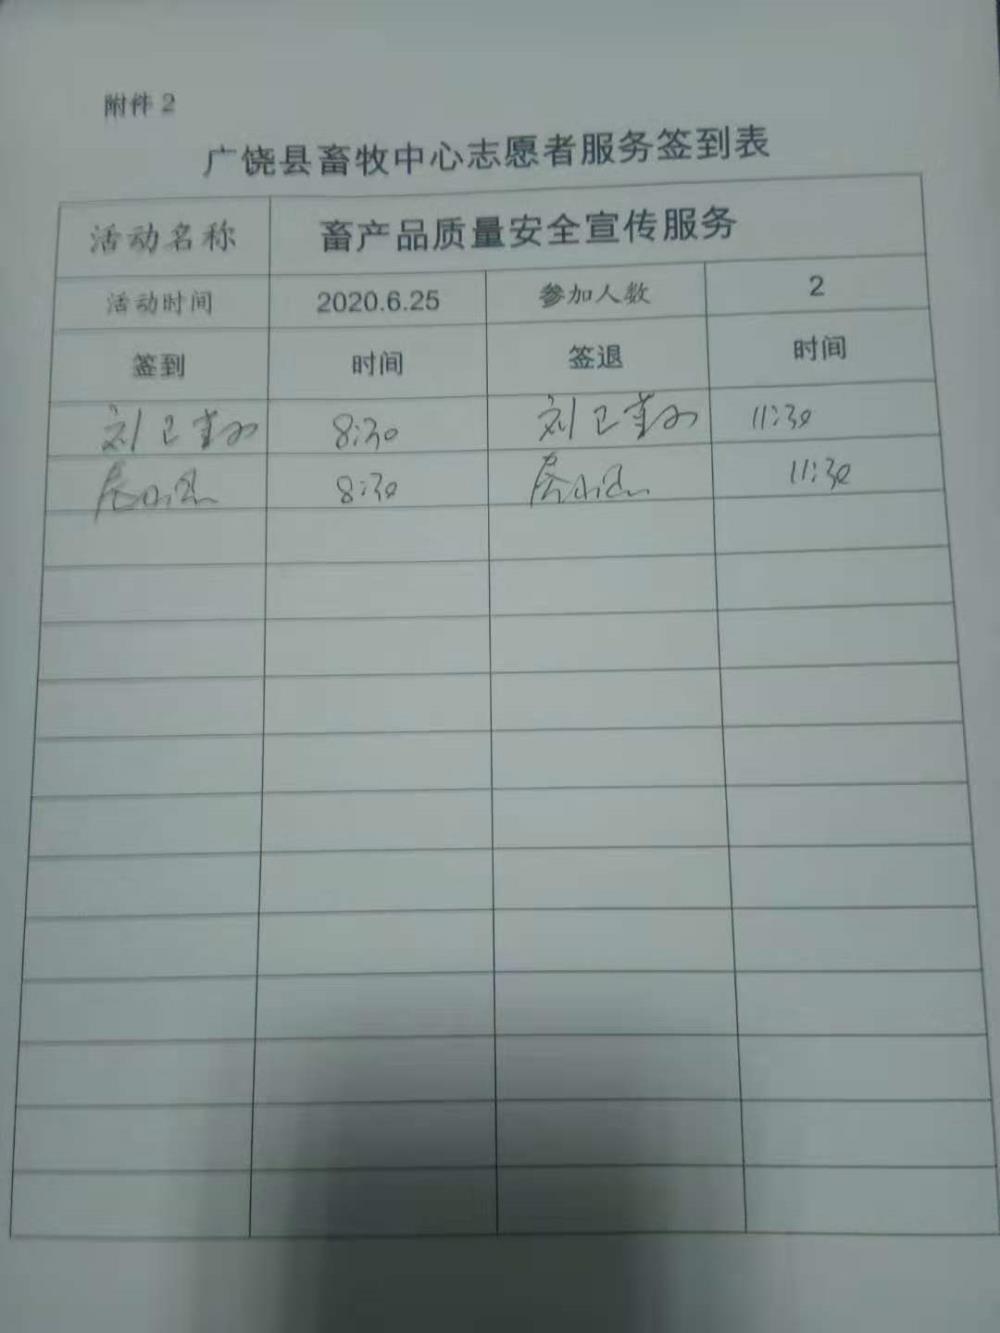 附件 2
广饶县畜牧中心志愿者服务签到表
活动名称 畜产品质量安全宣传服务
活动时间 2020.6.25 参加人数 2
签到 时间 签退 时间
刘 8:30 刘 11:30
8:30 11:30